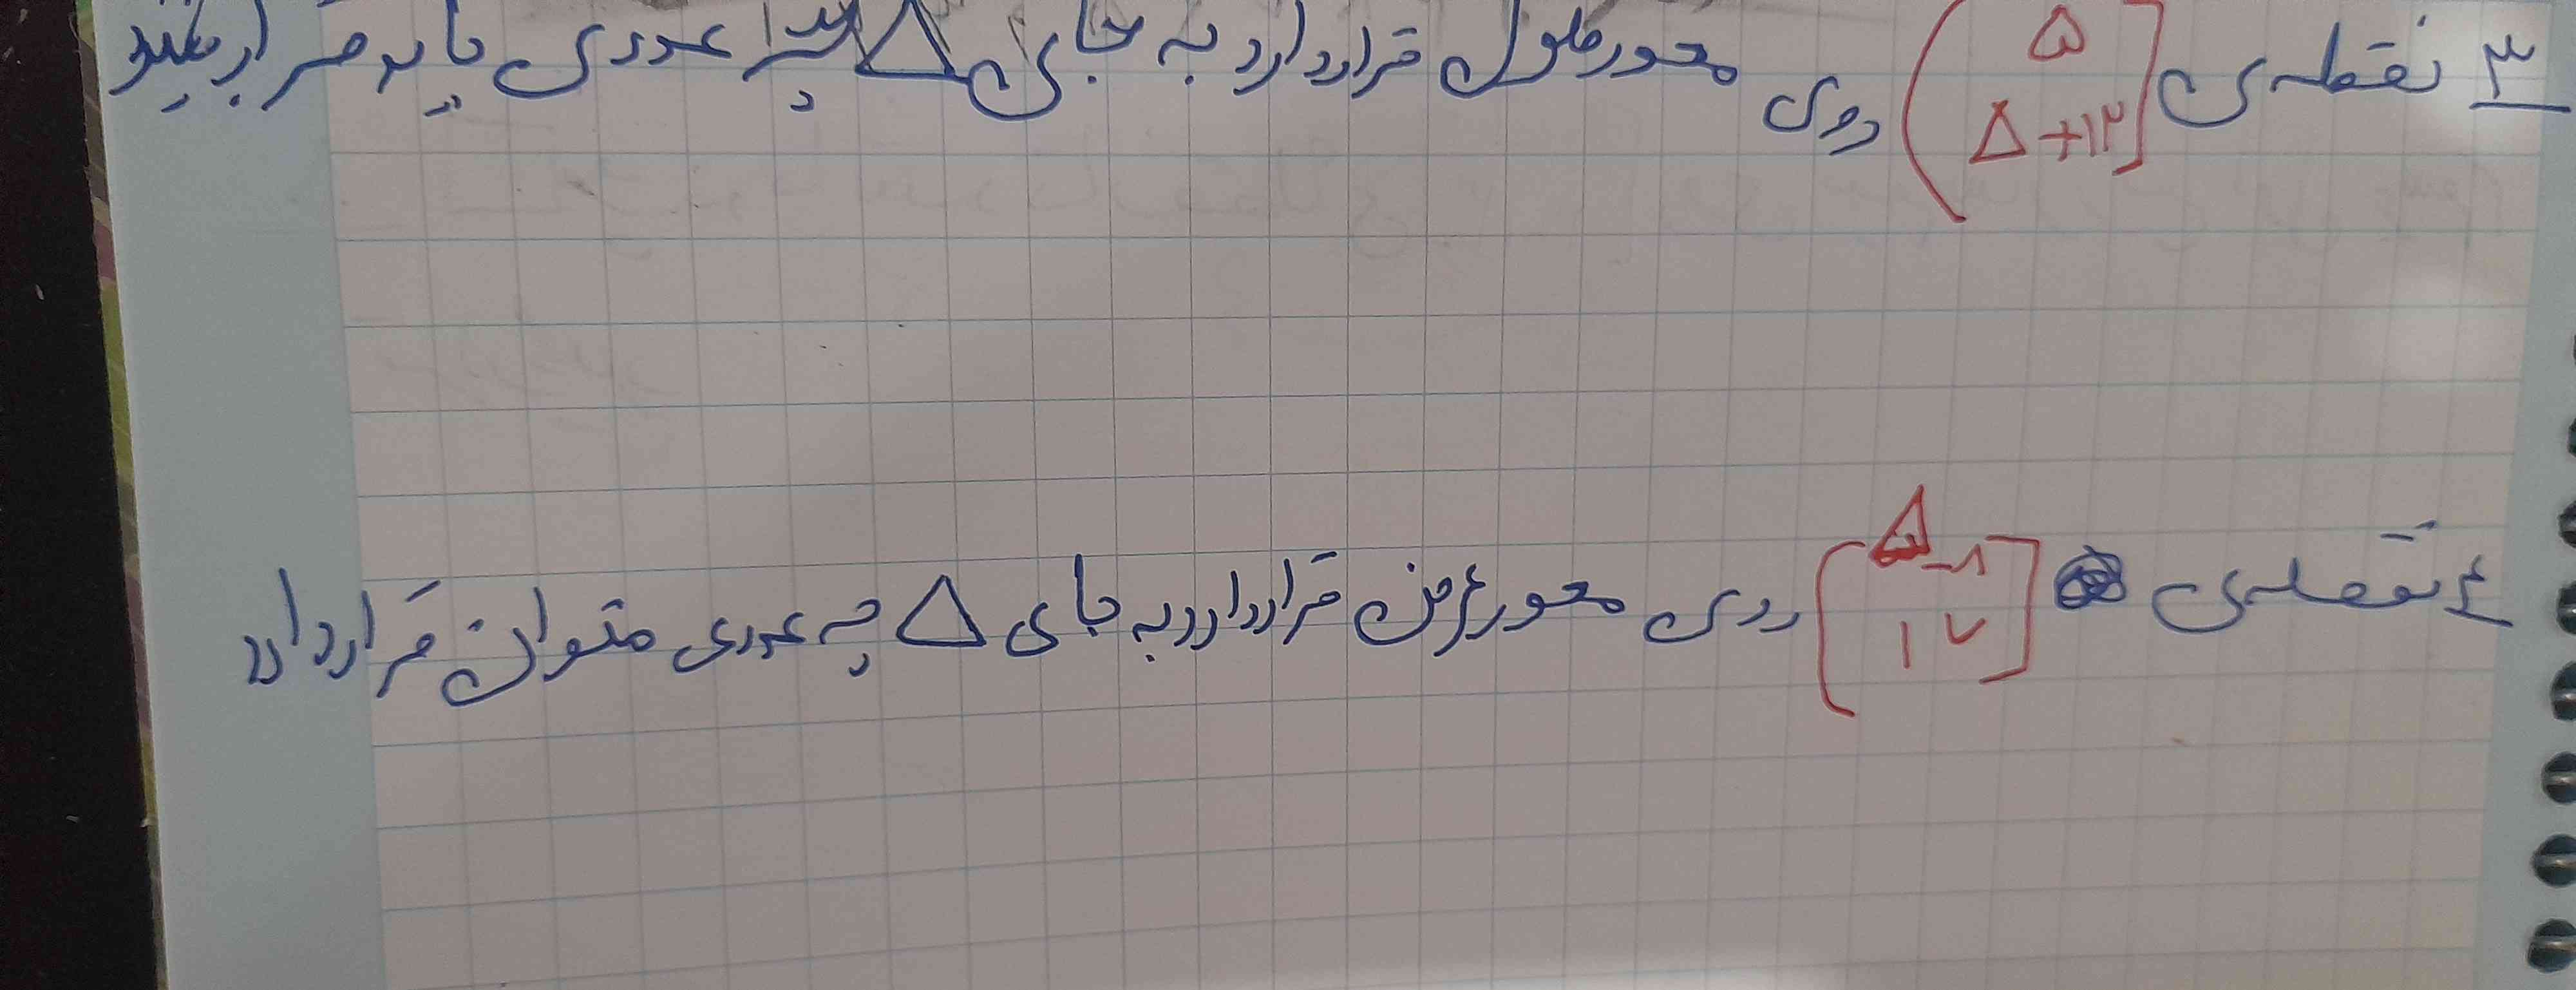 ۳ نقطه‌ی [۵ Δ+۱۲] روی محور طول قرار دارد به جای Δ چه عددی باید قرار بگیرد
۴ نقطه‌ی [Δ-۸ ۱۷] روی محور عرض قرار دارد به جای Δ چه عددی متوان قرار داد